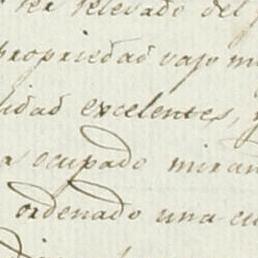 ser relevado del
propriedad vajo m
idad excelentes, y
a ocupado miran
ordenado una cu